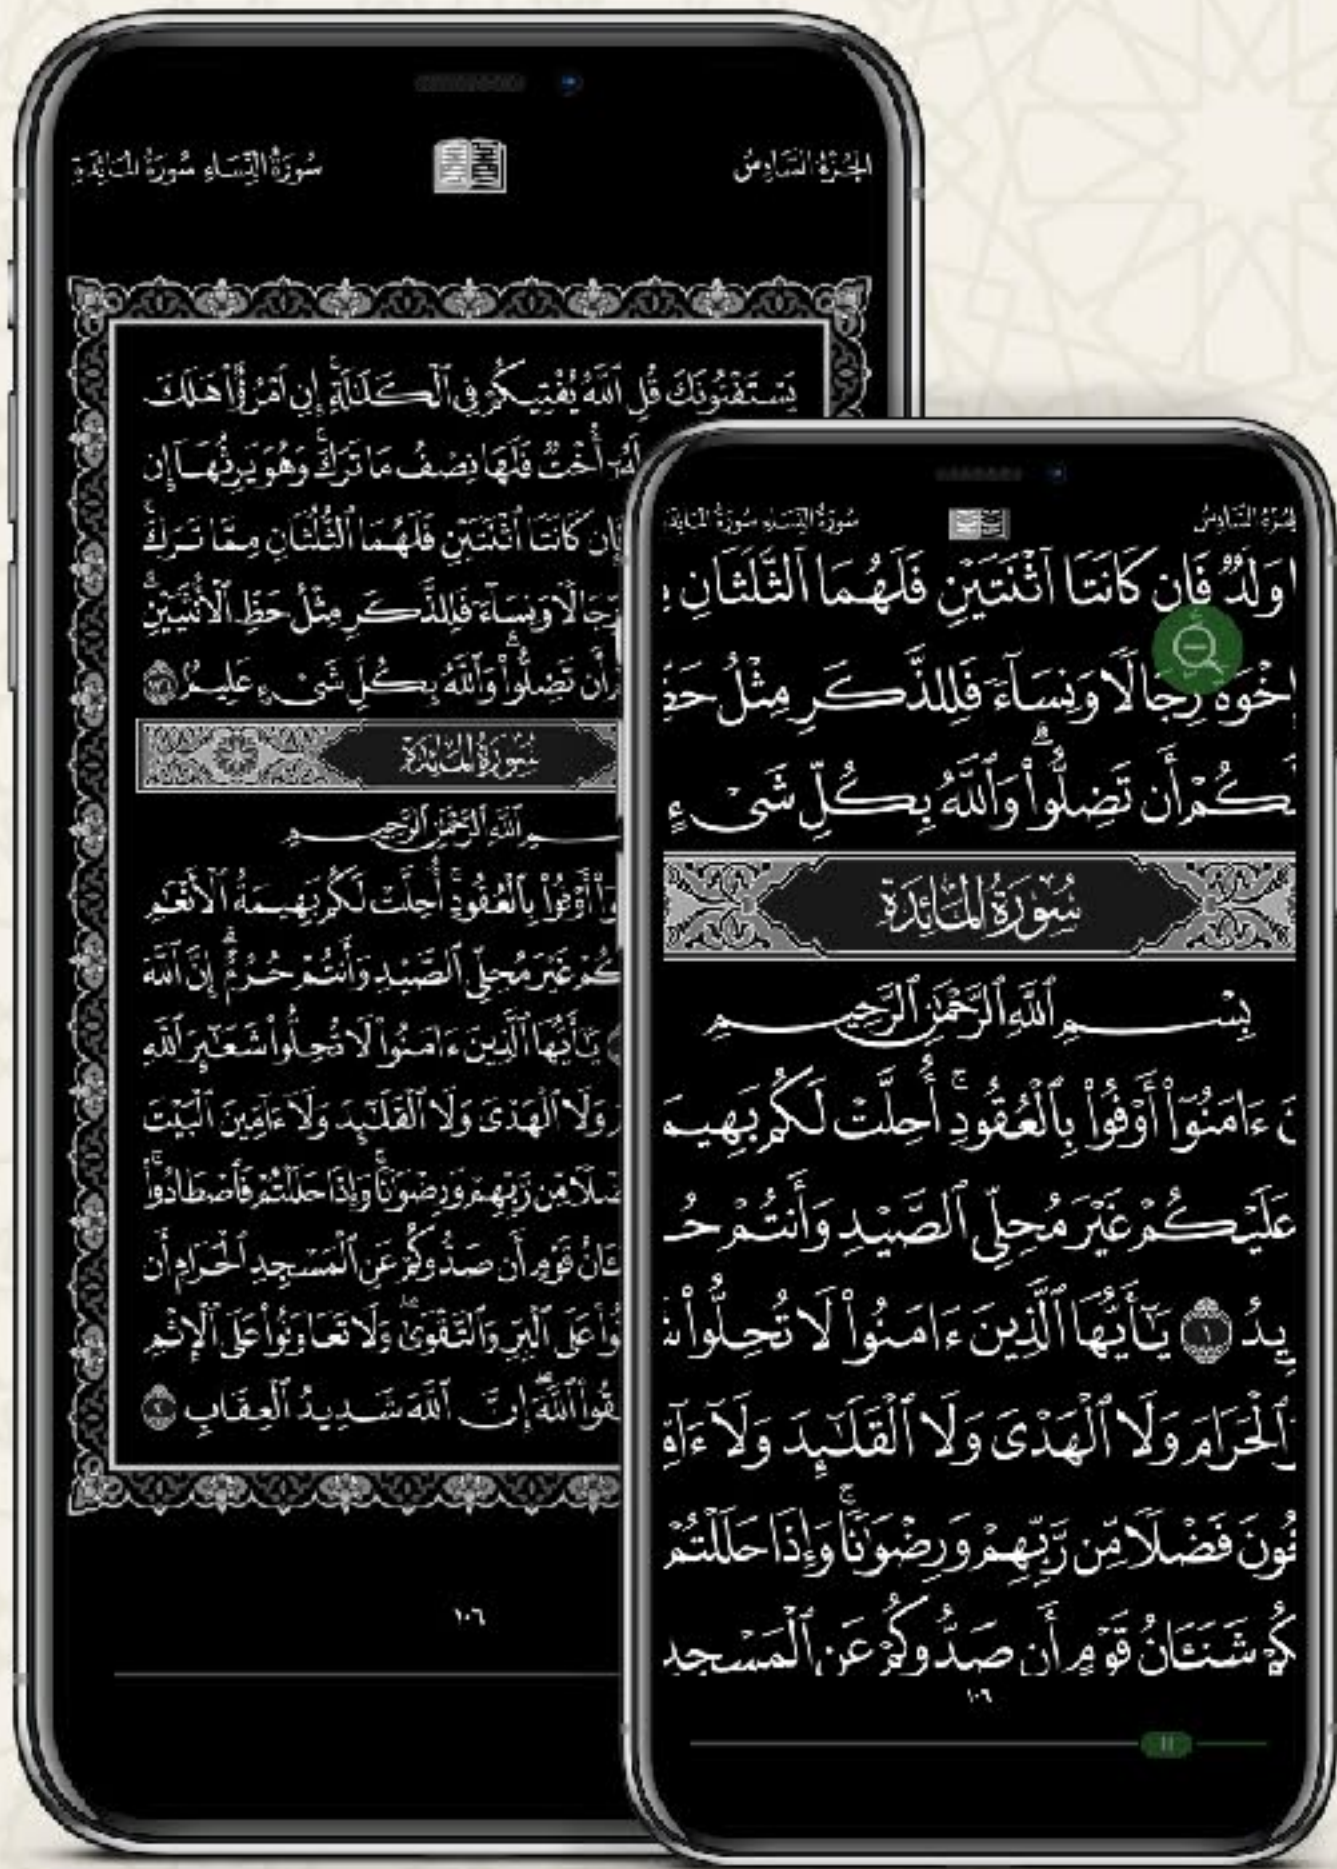 الجُزْءُ السَّادِسُ
سُورَةُ النِّسَاءِ سُورَةُ المَائِدَةِ
يَسْتَفْتُونَكَ قُلِ ٱللَّهُ يُفْتِيكُمْ فِي ٱلْكَلَٰلَةِۚ إِنِ ٱمْرُؤٌاْ هَلَكَ
لَهُۥٓ أُخْتٌ فَلَهَا نِصْفُ مَا تَرَكَۚ وَهُوَ يَرِثُهَآ إِن
فَإِن كَانَتَا ٱثْنَتَيْنِ فَلَهُمَا ٱلثُّلُثَانِ مِمَّا تَرَكَۚ
رِّجَالًا وَنِسَآءً فَلِلذَّكَرِ مِثْلُ حَظِّ ٱلْأُنثَيَيْنِۗ
أَن تَضِلُّواْۗ وَٱللَّهُ بِكُلِّ شَىْءٍ عَلِيمٌۢ ١٧٦
سُورَةُ المَائِدَةِ
ٱللَّهِ ٱلرَّحْمَٰنِ ٱلرَّحِيمِ
أَوْفُواْ بِٱلْعُقُودِۚ أُحِلَّتْ لَكُم بَهِيمَةُ ٱلْأَنْعَٰمِ
غَيْرَ مُحِلِّي ٱلصَّيْدِ وَأَنتُمْ حُرُمٌۗ إِنَّ ٱللَّهَ
يَٰٓأَيُّهَا ٱلَّذِينَ ءَامَنُواْ لَا تُحِلُّواْ شَعَٰٓئِرَ ٱللَّهِ
وَلَا ٱلْهَدْىَ وَلَا ٱلْقَلَٰٓئِدَ وَلَآ ءَآمِّينَ ٱلْبَيْتَ
مِّن رَّبِّهِمْ وَرِضْوَٰنًاۚ وَإِذَا حَلَلْتُمْ فَٱصْطَادُواْۚ
قَوْمٍ أَن صَدُّوكُمْ عَنِ ٱلْمَسْجِدِ ٱلْحَرَامِ أَن
عَلَى ٱلْبِرِّ وَٱلتَّقْوَىٰۖ وَلَا تَعَاوَنُواْ عَلَى ٱلْإِثْمِ
ٱللَّهَۖ إِنَّ ٱللَّهَ شَدِيدُ ٱلْعِقَابِ ٢
١٠٦
سُورَةُ النِّسَاءِ سُورَةُ
السَّادِسُ
وَلَدٌۚ فَإِن كَانَتَا ٱثْنَتَيْنِ فَلَهُمَا ٱلثُّلُثَانِ
إِخْوَةً رِّجَالًا وَنِسَآءً فَلِلذَّكَرِ مِثْلُ حَظِّ
لَكُمْ أَن تَضِلُّواْۗ وَٱللَّهُ بِكُلِّ شَىْءٍ
سُورَةُ المَائِدَةِ
بِسْمِ ٱللَّهِ ٱلرَّحْمَٰنِ ٱلرَّحِيمِ
ءَامَنُوٓاْ أَوْفُواْ بِٱلْعُقُودِۚ أُحِلَّتْ لَكُم بَهِيمَ
عَلَيْكُمْ غَيْرَ مُحِلِّي ٱلصَّيْدِ وَأَنتُمْ حُ
يدُ ١ يَٰٓأَيُّهَا ٱلَّذِينَ ءَامَنُواْ لَا تُحِلُّواْ
ٱلْحَرَامَ وَلَا ٱلْهَدْىَ وَلَا ٱلْقَلَٰٓئِدَ وَلَآ ءَآمِّ
فَضْلًا مِّن رَّبِّهِمْ وَرِضْوَٰنًاۚ وَإِذَا حَلَلْتُمْ
شَنَـَٔانُ قَوْمٍ أَن صَدُّوكُمْ عَنِ ٱلْمَسْجِدِ
١٠٦